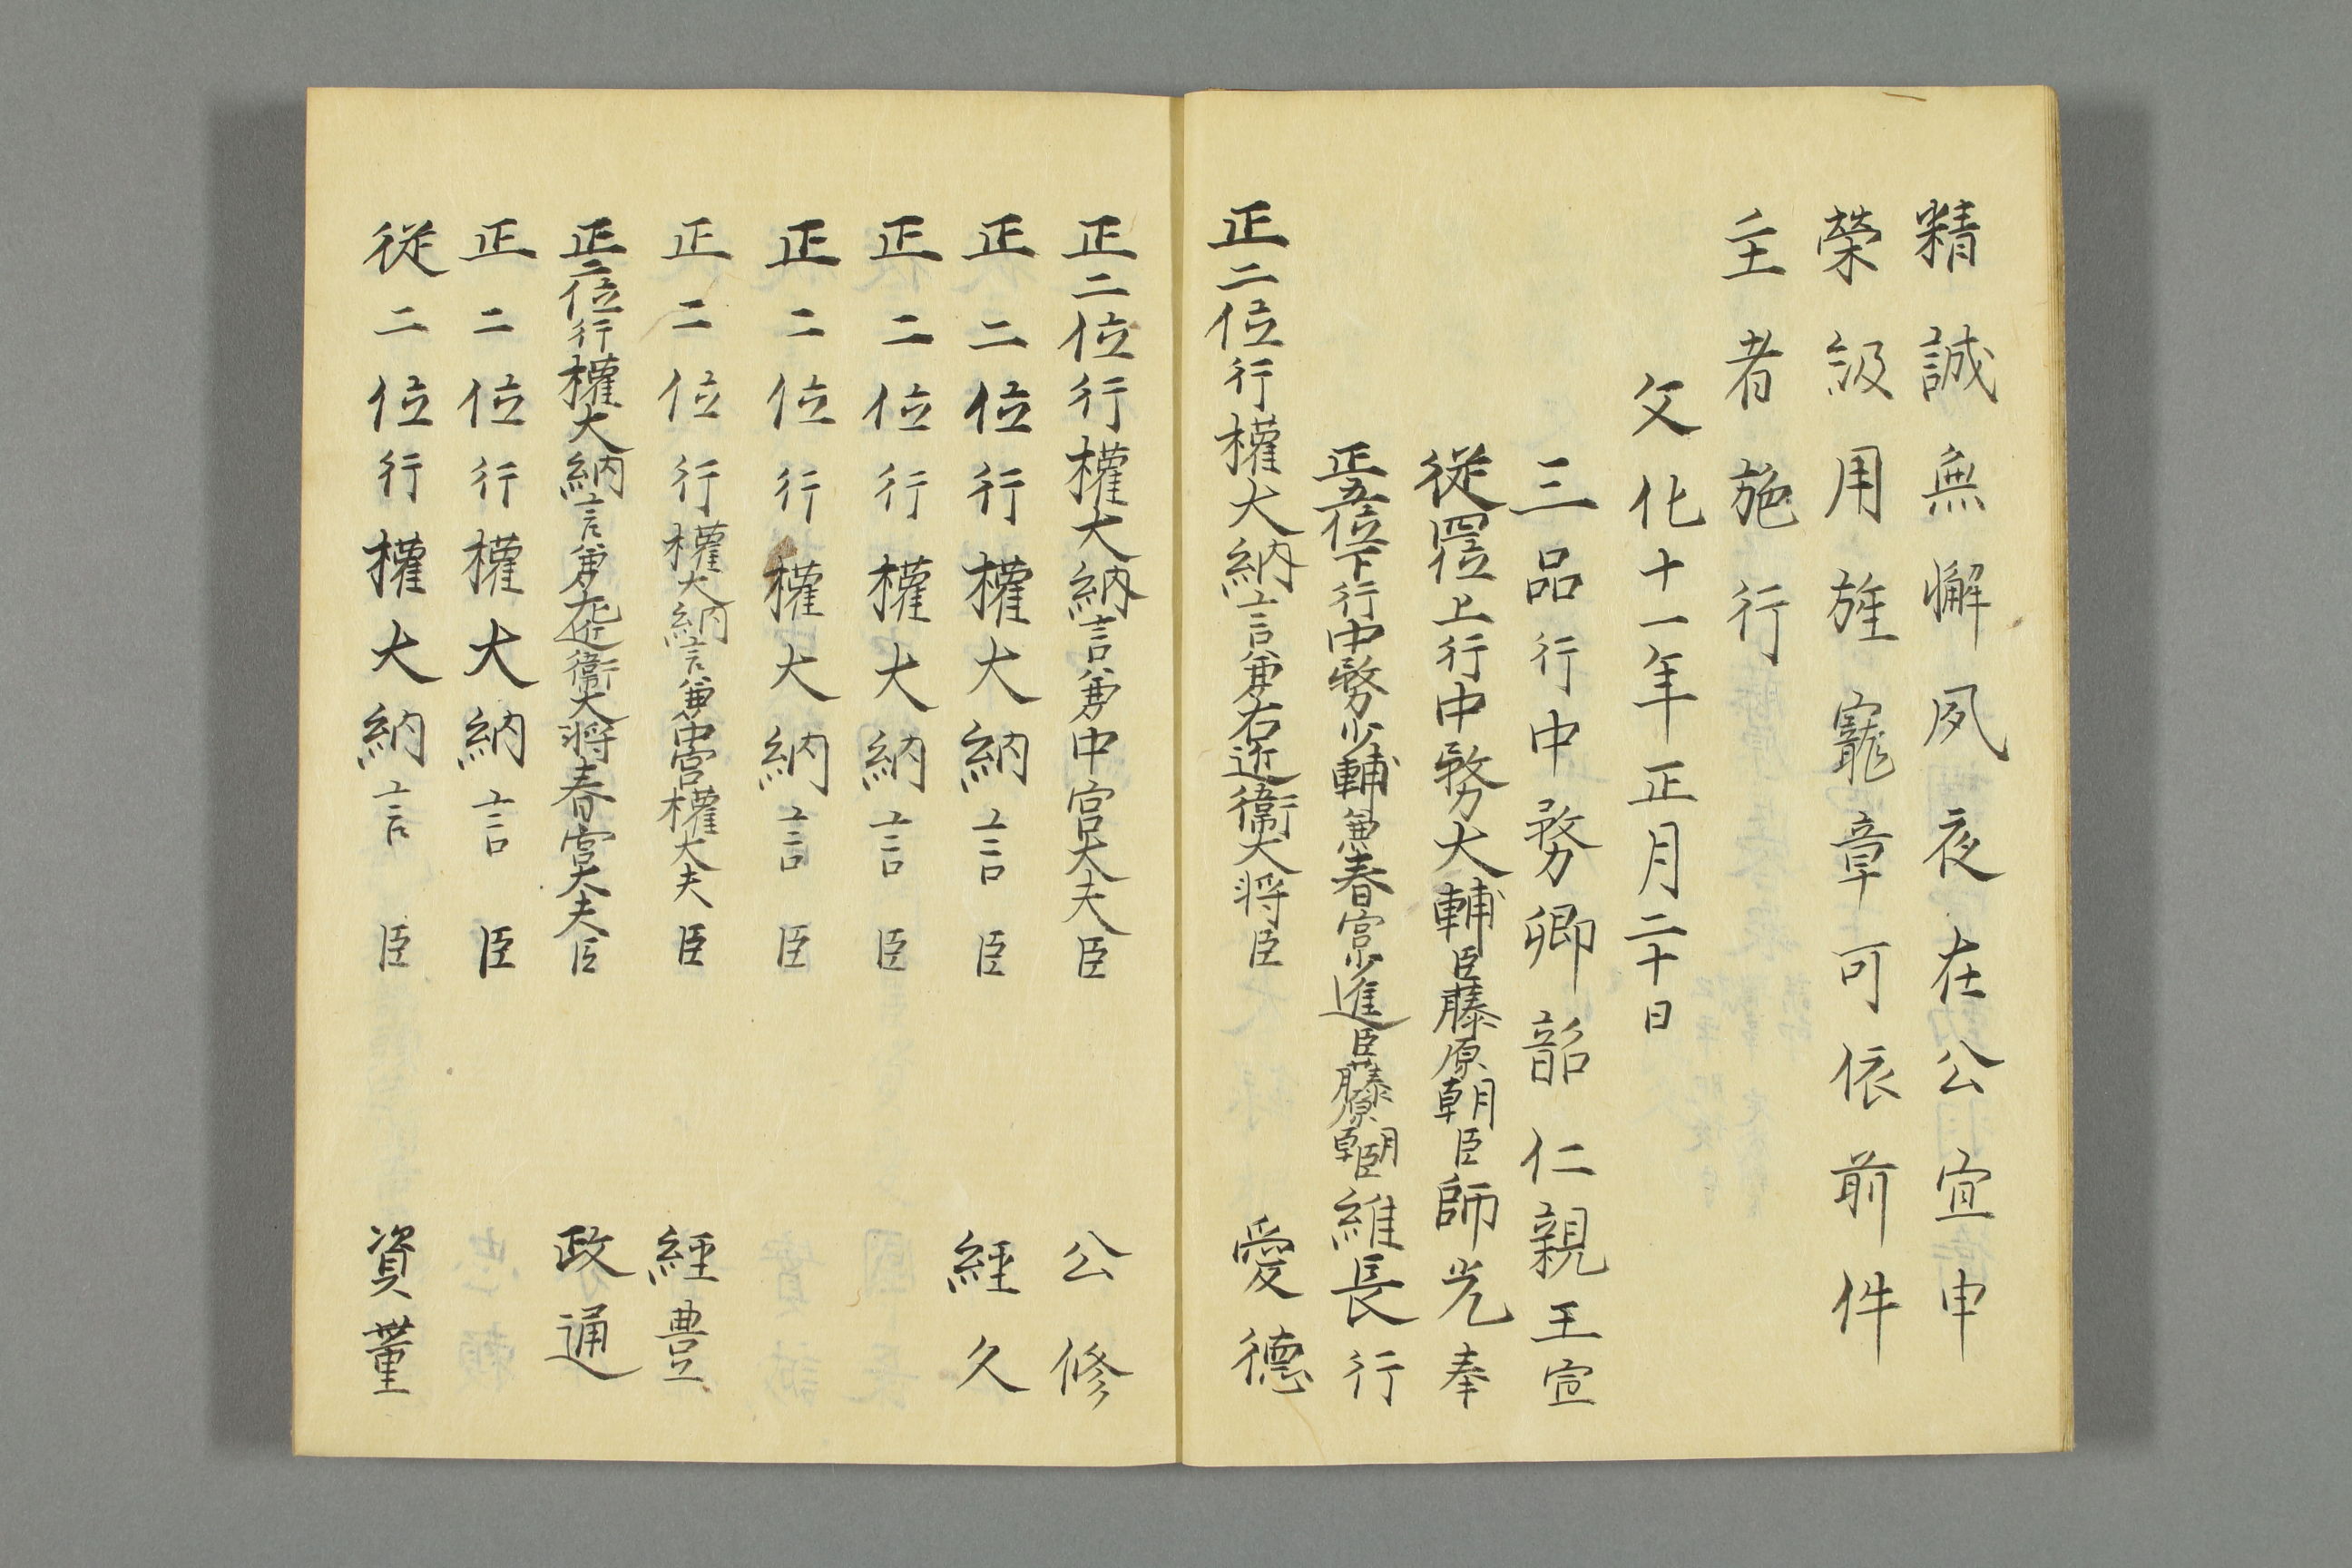 精誠無懈夙夜在公宣申
榮級用旌寵章可依前件
主者施行
文化十一年正月二十日
三品行中務卿韶仁親王宣
從四位上行中務大輔臣藤原朝臣師光奉
正五位下行中務少輔兼春宮少進臣藤原朝臣維長行
正二位行權大納言兼右近衛大将臣愛德
正二位行權大納言兼中宮大夫臣公修
正二位行權大納言臣經久
正二位行權大納言臣
正二位行權大納言臣
正二位行權大納言兼中宮權大夫臣經豊
正二位行權大納言兼左近衛大将春宮大夫臣政通
正二位行權大納言臣
從二位行權大納言臣資董